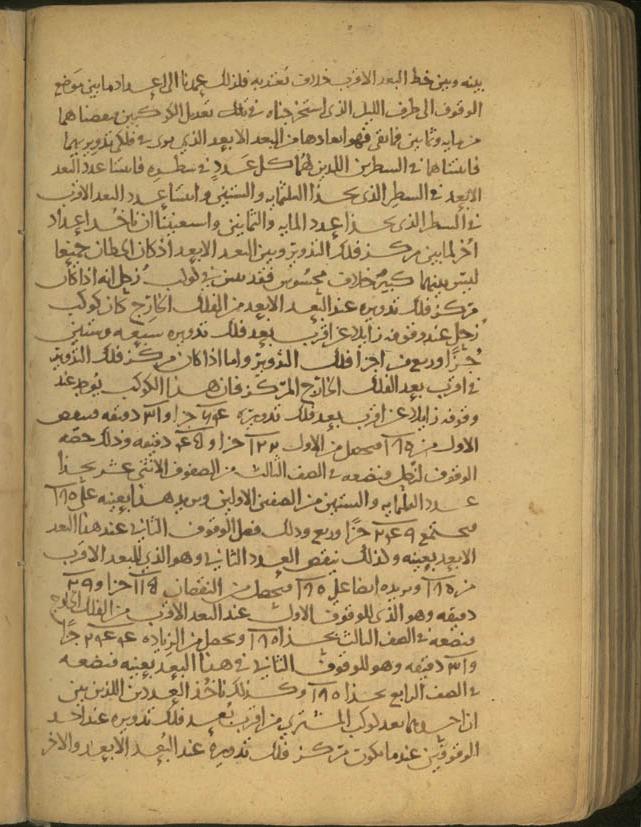 بينه وبين خط البعد الاقرب خلاف تعتد به فلذلك عمدنا الى اعداد ما بين موضع
الوقوف الى طرف الليل الذي استخرجناه في تلك تعديل الكوكبين نقصناهما
من مايه وثمانين فما بقي فهو ابعادهما من البعد الابعد الذي يرى في فلك تدويرهما
فاثبتناهما في السطرين اللذين لهما كل عدد في سطره فاثبتنا عدد البعد
الابعد في السطر الذي بحذا الثلثمايه والستين واثبتنا عدد البعد الاقرب
في السطر الذي بحذا عدد المايه والثمانين واستغنينا ان ناخذ اعداد
اخر لما بين مركز فلك التدوير وبين البعد الابعد اذ كان الخطان جميعا
ليس بينهما كبير خلاف محسوس فقد تبين في كوكب زحل انه اذا كان
مركز فلك تدويره عند البعد الابعد من الفلك الخارج كان كوكب
زحل عند وقوفه زايلا عن اقرب بعد فلك تدويره سبعه وستين
جزا وربع من اجزا فلك التدوير واما اذا كان مركز فلك التدوير
في اقرب بعد الفلك الخارج المركز فان هذا الكوكب يوجد عند
وقوفه زايلا عن اقرب بعد فلك تدويره جزا و دقيقه فننقص
الاول من فيحصل من الاول جزا و دقيقه وذلك حصه
الوقوف لزحل فنضعه في الصف الثالث من الصفوف الاثني عشر بحذا
عدد الثلثمايه والستين من الصفين الاولين ونزيد هذا بعينه على
فيجتمع جزا وربع وذلك فصل الوقوف الثاني عند هذا البعد
الابعد بعينه وكذلك ننقص العدد الثاني وهو الذي للبعد الاقرب
من ونزيده ايضا على فيحصل من النقصان جزا و
دقيقه وهو الذي للوقوف الاول عند البعد الاقرب من الفلك الخارج
فنضعه في الصف الثالث بحذا ويحصل من الزياده جزا
و دقيقه وهو للوقوف الثاني في هذا البعد بعينه فنضعه
في الصف الرابع بحذا وكذلك ناخذ العددين اللذين بين
ان احدهما بعد كوكب المشتري من اقرب بعد فلك تدويره عند احد
الوقوفين عندما يكون مركز فلك تدويره عند البعد الابعد والاخر